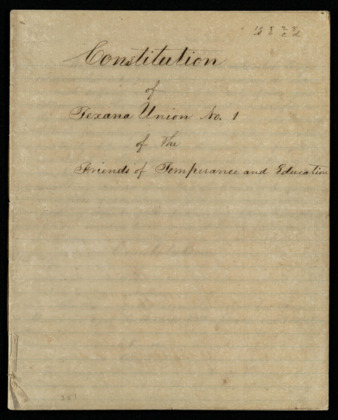 Constitution
of
Texana Union No. 1
of the
Friends of Temperance and Education